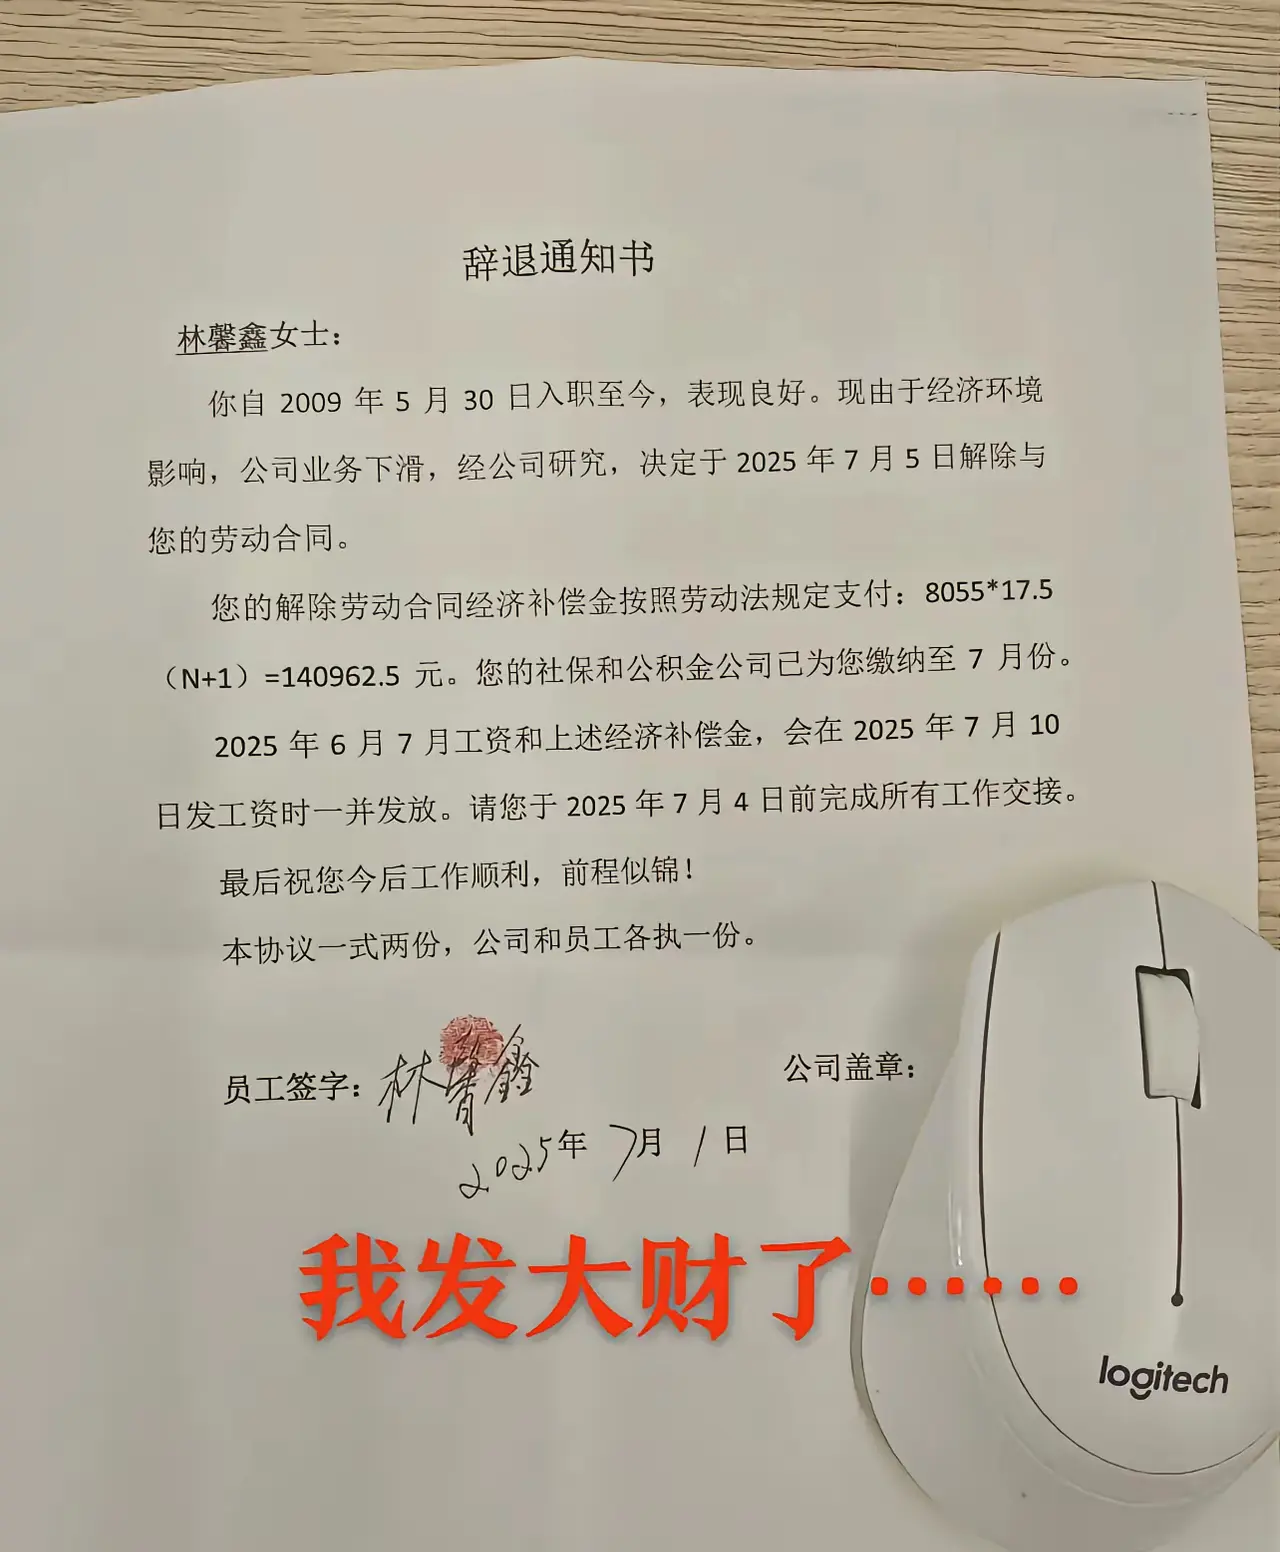 辞退通知书
林馨鑫女士：
你自 2009 年 5 月 30 日入职至今，表现良好。现由于经济环境
影响，公司业务下滑，经公司研究，决定于 2025 年 7 月 5 日解除与
您的劳动合同。
您的解除劳动合同经济补偿金按照劳动法规定支付：8055*17.5
（N+1）=140962.5 元。您的社保和公积金公司已为您缴纳至 7 月份。
2025 年 6 月 7 月工资和上述经济补偿金，会在 2025 年 7 月 10
日发工资时一并发放。请您于 2025 年 7 月 4 日前完成所有工作交接。
最后祝您今后工作顺利，前程似锦！
本协议一式两份，公司和员工各执一份。
员工签字：林馨鑫 公司盖章：
2025年 7月 1日
我发大财了……
logitech